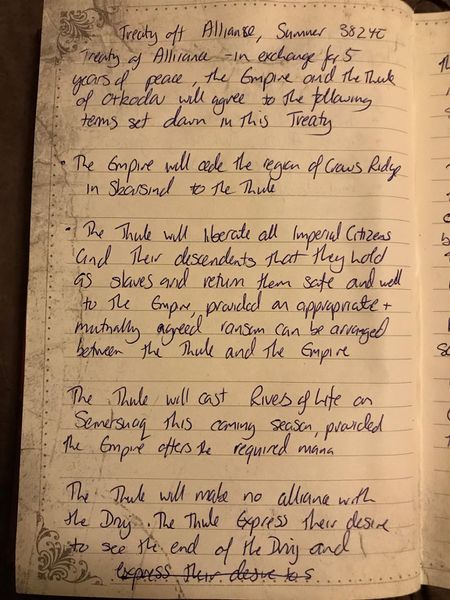 Treaty of Alliance, Summer 382YE
Treaty of Alliance - in exchange for 5
years of peace, the Empire and the Thule
of Otkodov will agree to the following
terms set down in this Treaty
• The Empire will cede the region of Crows Ridge
in Skarsind to the Thule
• The Thule will liberate all Imperial Citizens
and their descendents that they hold
as slaves and return them safe and well
to the Empire, provided an appropriate +
mutually agreed ransom can be arranged
between the Thule and the Empire
The Thule will cast Rivers of Life on
Sermersuaq this coming season, provided
the Empire offers the required mana
The Thule will make no alliance with
the Druj. The Thule Express their desire
to see the end of the Druj and
express their desire to s